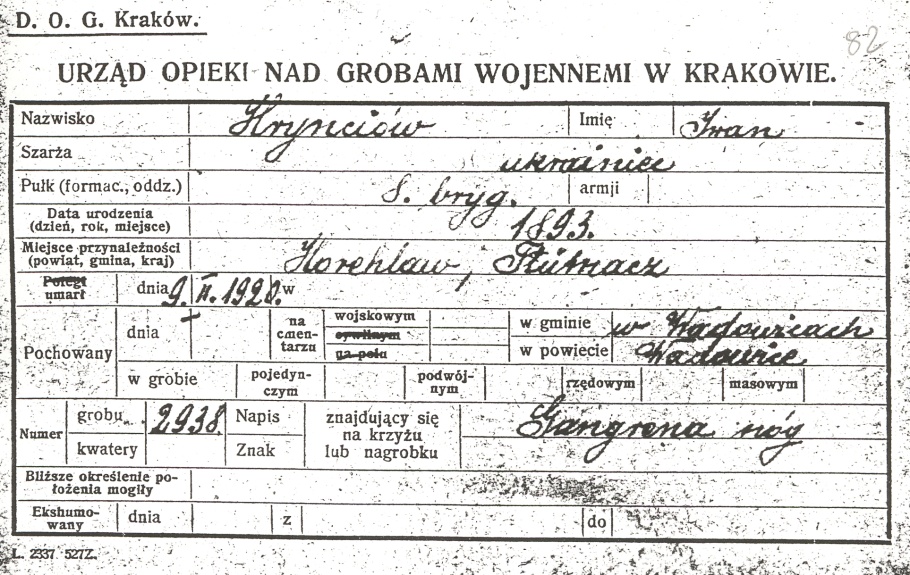 D. O. G. Kraków.
82
URZĄD OPIEKI NAD GROBAMI WOJENNEMI W KRAKOWIE.
Nazwisko Hrynciów Imię Iwan
Szarża ukrainiec
Pułk (formac., oddz.) 8. bryg. armji
Data urodzenia (dzień, rok, miejsce) 1893.
Miejsce przynależności (powiat, gmina, kraj) Horehlaw, Tłumacz
Poległ
umarł dnia 9. II. 1920. w
Pochowany dnia na cmentarzu wojskowym cywilnym na polu w gminie w Wadowicach
w powiecie Wadowice
w grobie pojedynczym podwójnym rzędowym masowym
Numer grobu 2938. Napis znajdujący się na krzyżu lub nagrobku Gangrena nóg
kwatery Znak
Bliższe określenie położenia mogiły
Ekshumowany dnia z do
L. 2337 527Z.